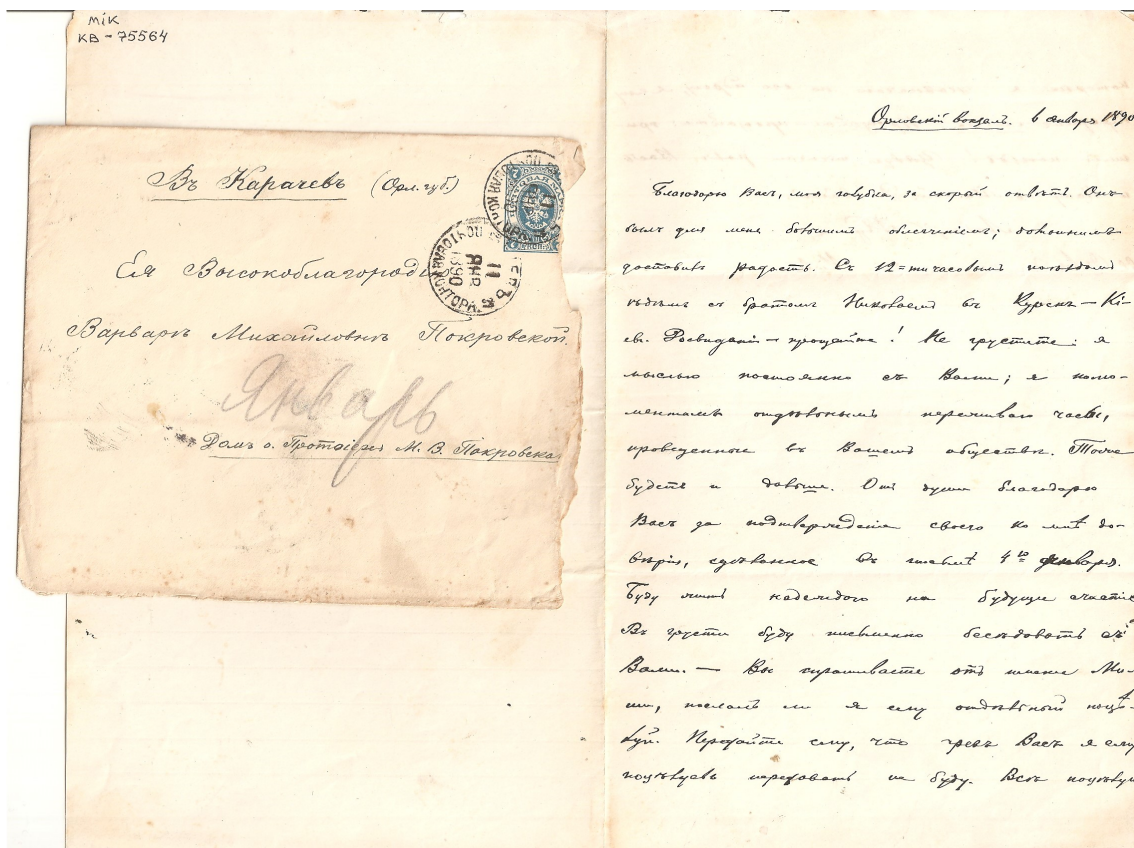 МІК
КВ - 75564
Въ Карачевъ (Орл. губ.)
Ея Высокоблагороді
Варварѣ Михайловнѣ Покровской.
Январь
Домъ о. Протоіерея М. В. Покровска
11
ЯНВ
1890
Орловскій вокзалъ. 6 января 1890
Благодарю Васъ, моя голубка, за скорый отвѣтъ. Онъ
былъ для меня большимъ облегченіемъ;
доставилъ радость. Съ 12=тичасовымъ поѣздомъ
ѣдемъ съ братомъ Николаемъ въ Курскъ – Кі-
евъ. Досвиданія – прощайте! Не грустите: я
мыслью постоянно съ Вами; я
отдѣльнымъ переживаю часы,
проведенные въ Вашемъ обществѣ. Тоже
будетъ и дальше. Отъ души благодарю
Васъ за подтвержденіе своего ко мнѣ до-
вѣрія, сдѣланное въ письмѣ 4го января.
Буду жить надеждою на будущее счастіе
Въ грусти буду письменно бесѣдовать съ
Вами. – Вы спрашиваете отъ имени Ми-
ши, послалъ ли я ему отдѣльный поцѣ-
луй. Передайте ему, что чрезъ Васъ я ему
поцѣлуевъ передавать не буду. Всѣ поцѣлуи